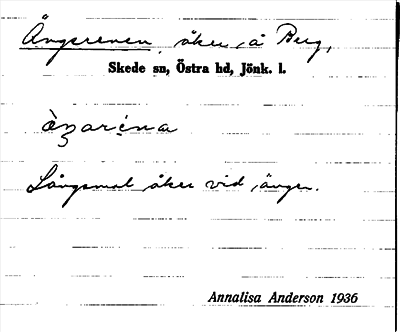 Ängsreven, åker, å Berg,
Skede sn, Östra hd, Jönk. l.
Långsmal åker vid ängen.
Annalisa Anderson 1936